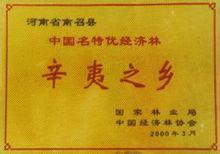 河南省南召县
中国名特优经济林
辛夷之乡
国家林业局
中国经济林协会
2000年3月